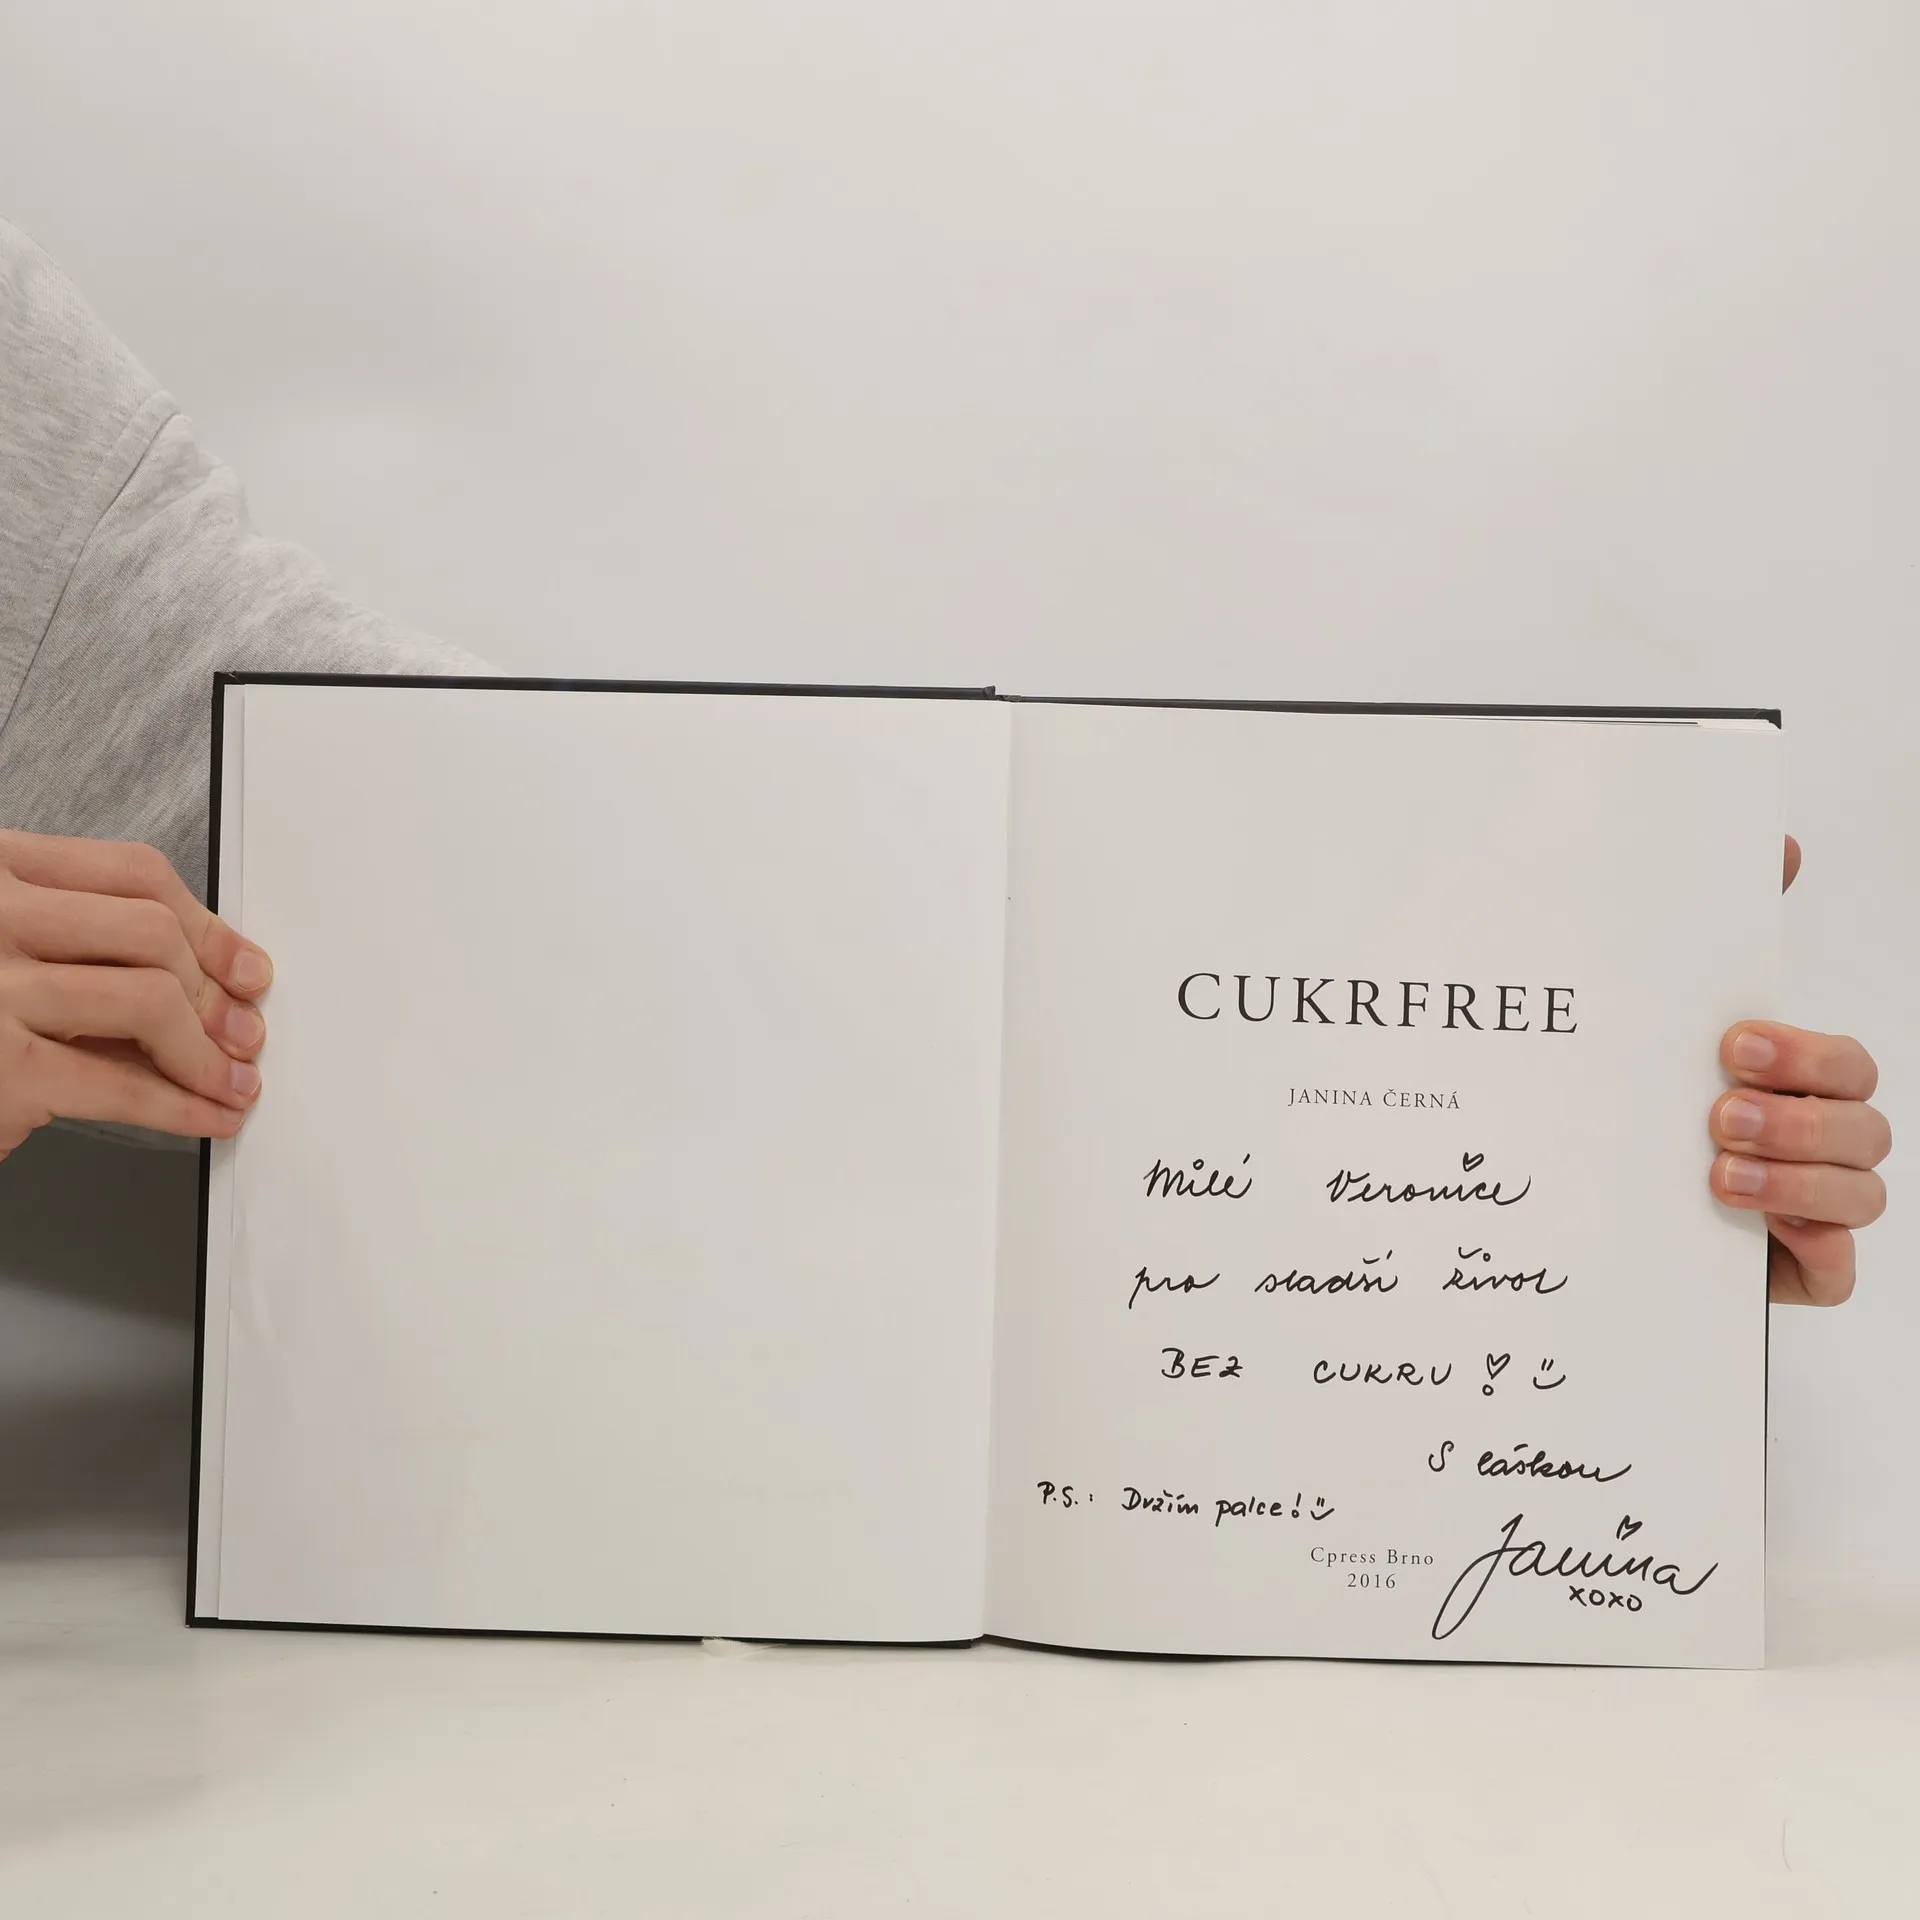 CUKRFREE
JANINA ČERNÁ
Milé Veronice
pro sladší život
BEZ CUKRU!
S láskou
P.S.: Držím palce!
Janina
xoxo
Cpress Brno
2016